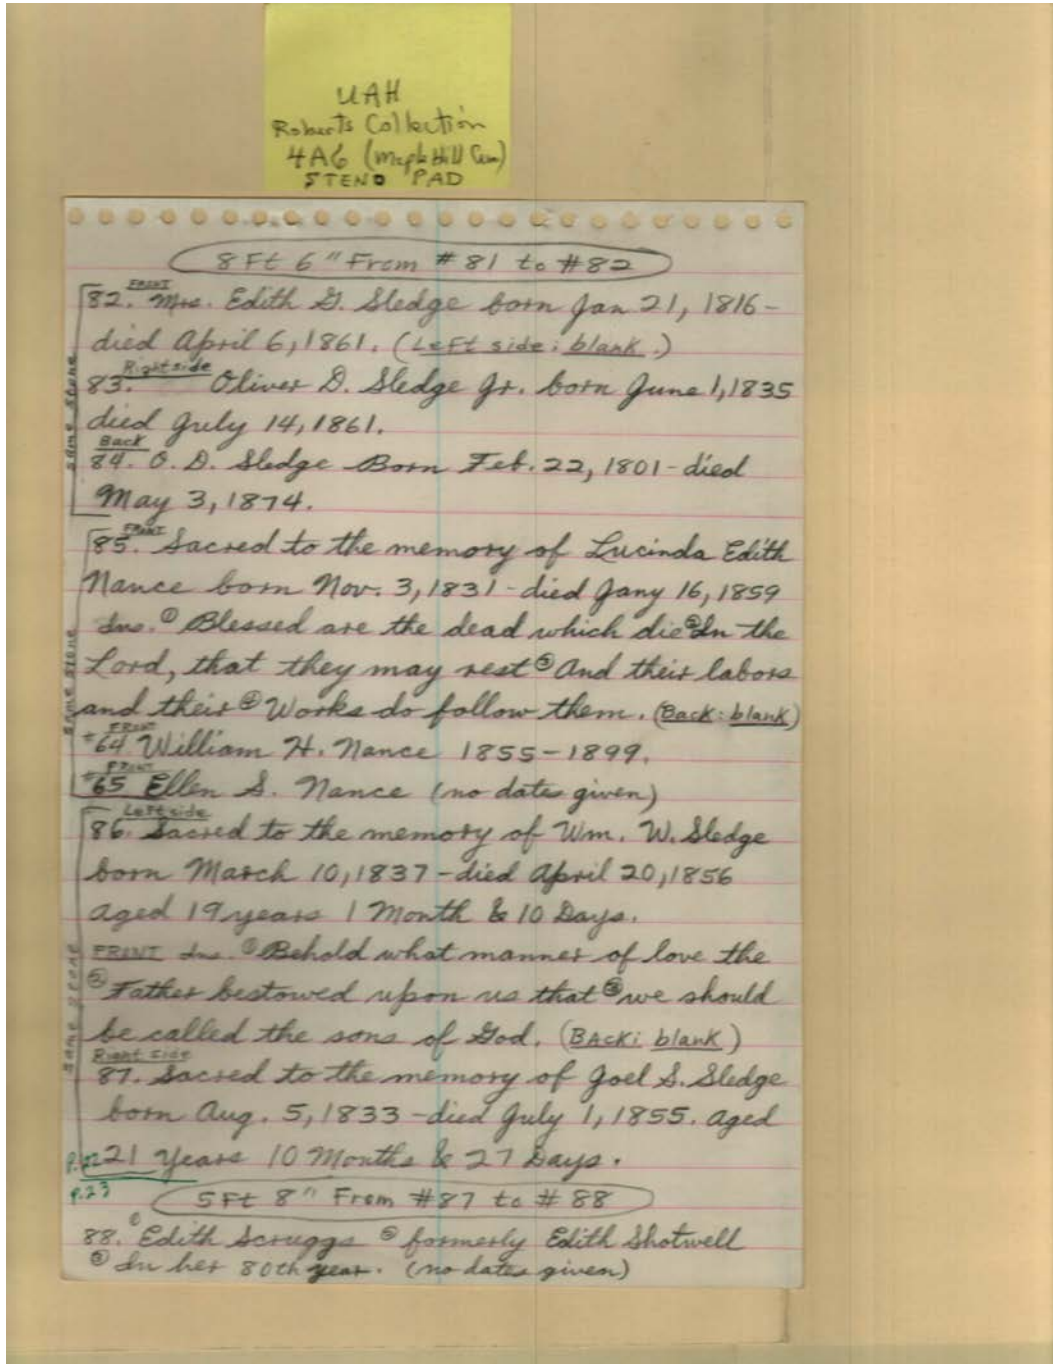 UAH
Roberts Collection
4A6 (Maple Hill Cem)
STENO PAD
8 Ft 6" From #81 to #82
FRONT
82. Mrs. Edith G. Sledge born Jan 21, 1816-
died April 6, 1861. (Left side: blank.)
Right side
83. Oliver D. Sledge Jr. born June 1, 1835
died July 14, 1861.
Back
84. O. D. Sledge Born Feb. 22, 1801 - died
May 3, 1874.
same stone
FRONT
85. Sacred to the memory of Lucinda Edith
Nance born Nov. 3, 1831 - died Jany 16, 1859
Ins. ① Blessed are the dead which die ② In the
Lord, that they may rest ③ And their labors
and their ④ Works do follow them. (Back: blank)
FRONT
#64 William H. Nance 1855-1899.
FRONT
#65 Ellen S. Nance (no dates given)
same stone
Left side
86. Sacred to the memory of Wm. W. Sledge
born March 10, 1837 - died April 20, 1856
aged 19 years 1 Month & 10 Days.
FRONT Ins. ① Behold what manner of love the
② Father bestowed upon us that ③ we should
be called the sons of God. (BACK: blank)
Right side
87. Sacred to the memory of Joel S. Sledge
born Aug. 5, 1833 - died July 1, 1855. aged
P.22 21 years 10 Months & 27 Days.
same stone
P.23
5 Ft 8" From #87 to #88
88. ① Edith Scruggs ② formerly Edith Shotwell
③ In her 80th year. (no dates given)